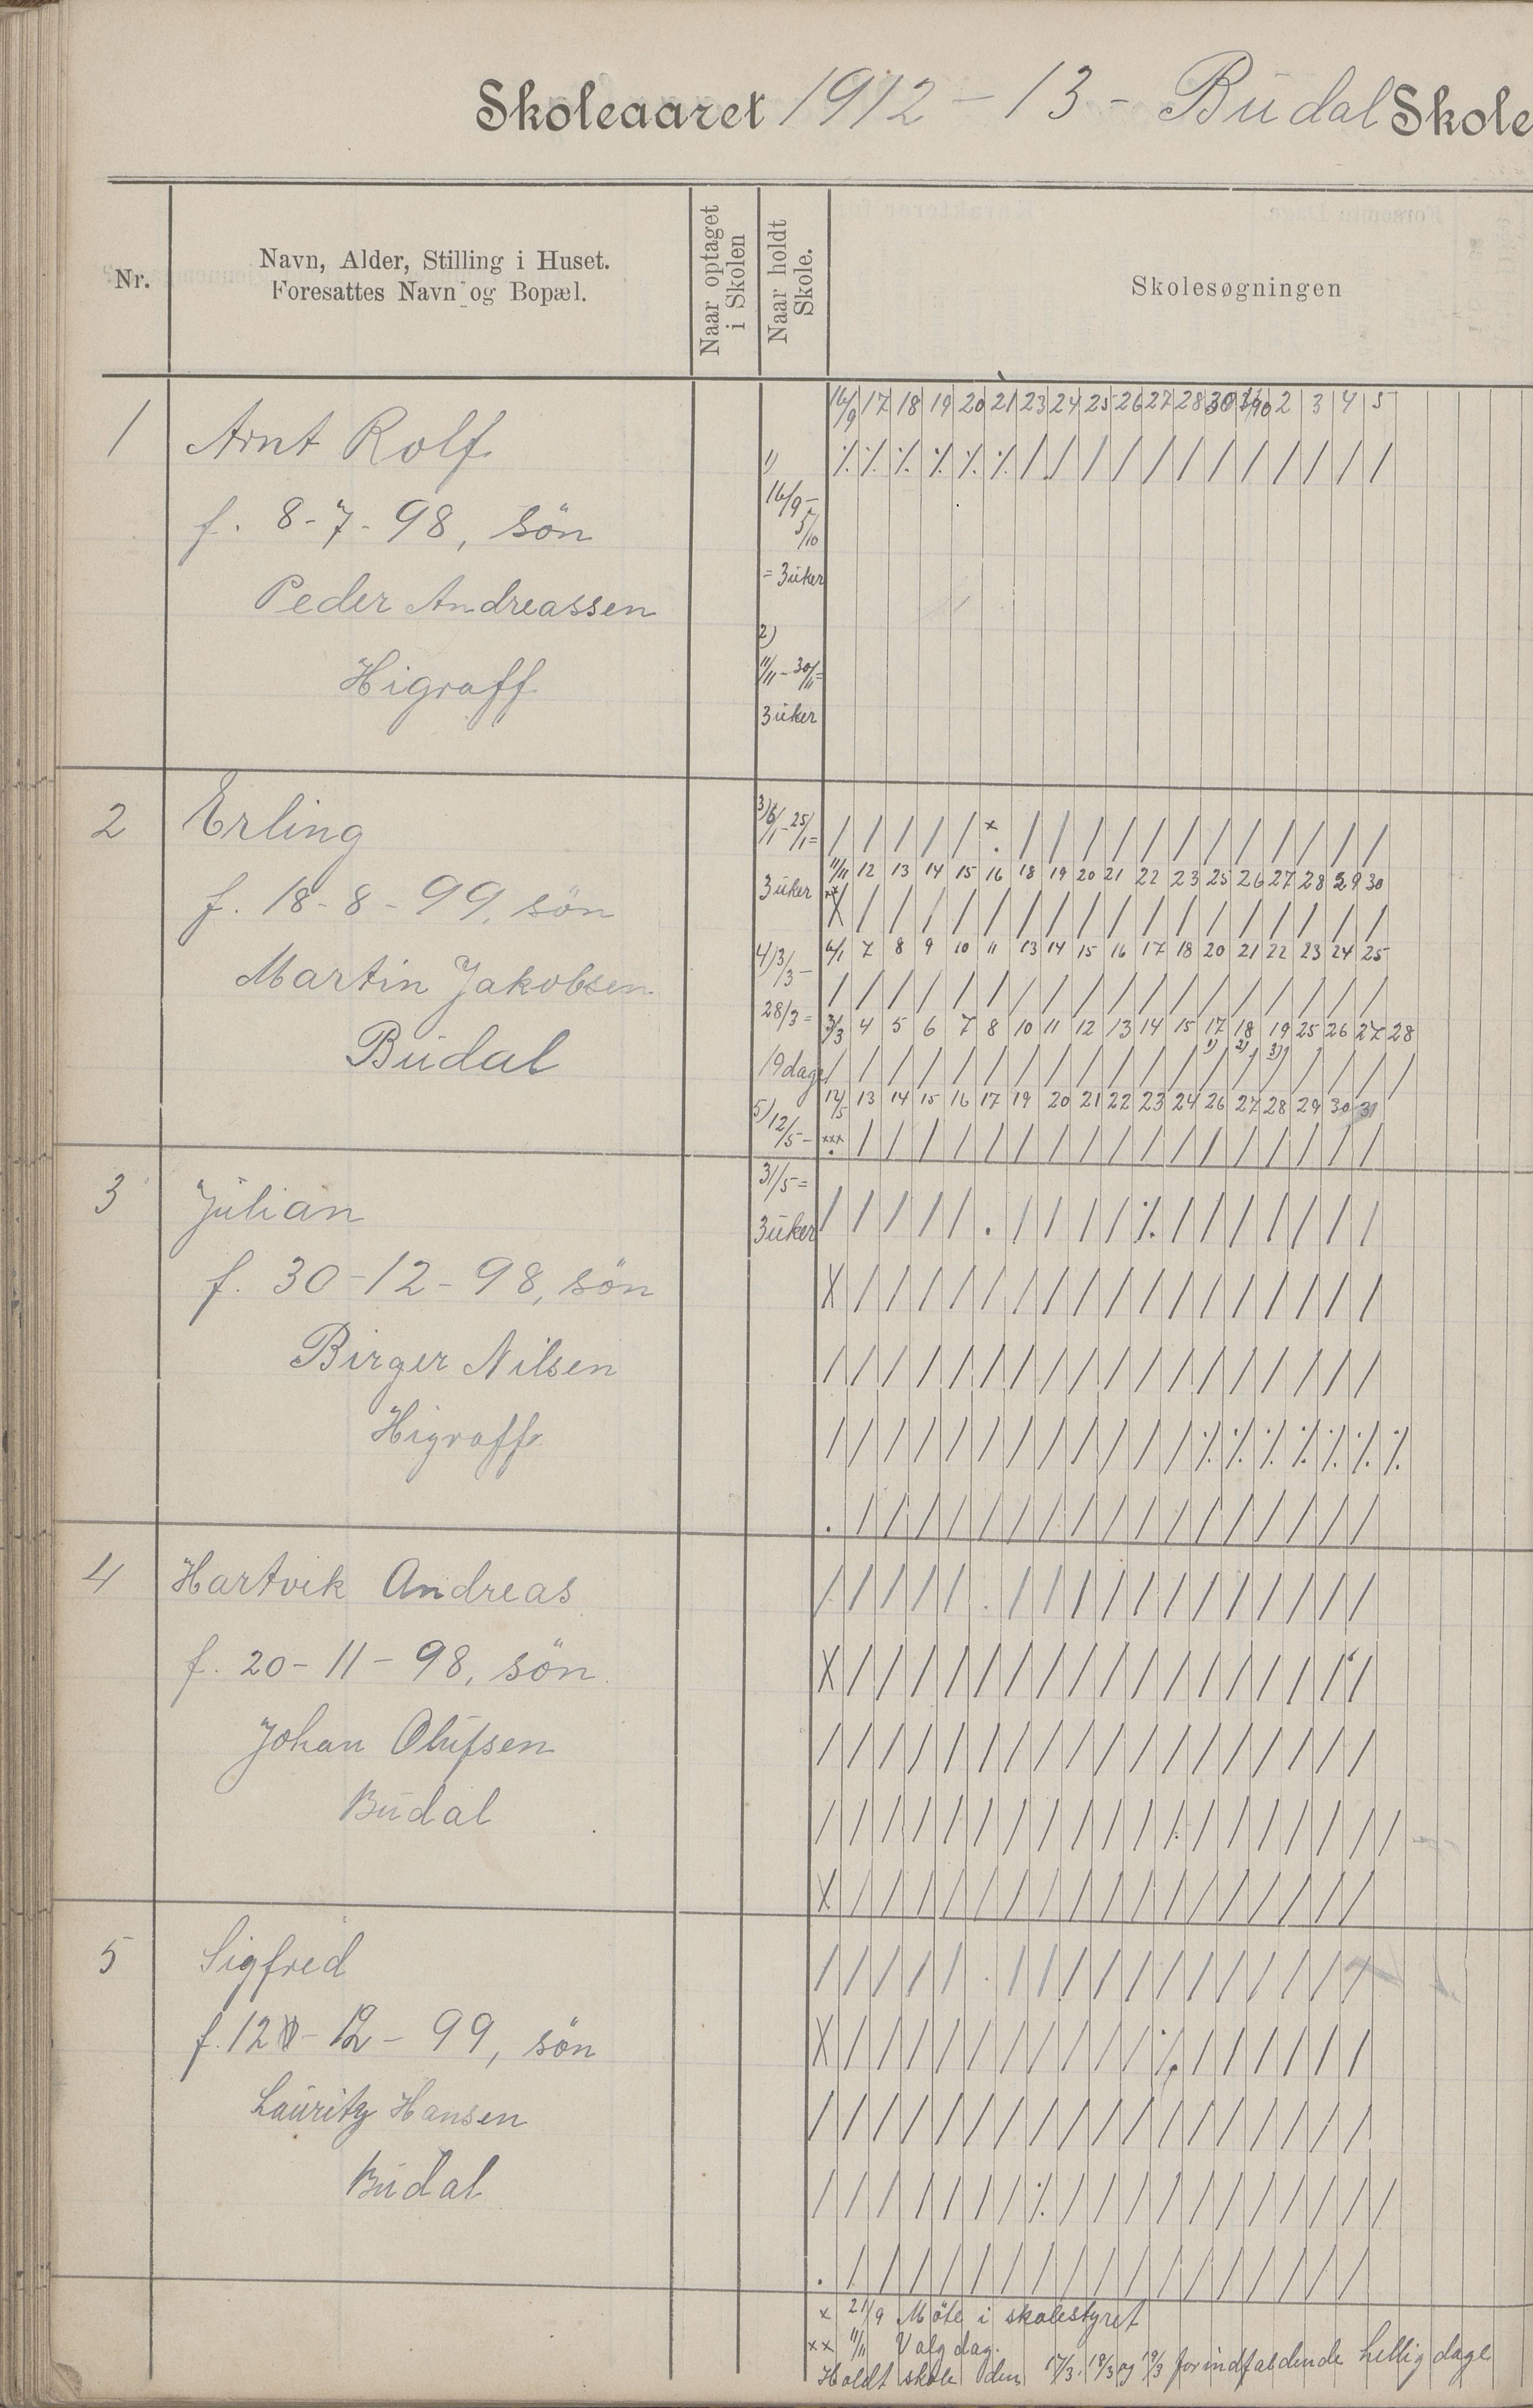 Skoleaaret 1912 - 13 - Budal Skole
Nr.
Navn, Alder, Stilling i Huset.
Foresattes Navn og Bopæl.
Naar optaget
i Skolen
Naar holdt
Skole.
Skolesøgningen
16/9 17 18 19 20 21 23 24 25 26 27 28 30 1/10 2 3 4 5
1 Arnt Rolf
f. 8-7-98, sön
Peder Andreassen
Higraff
1)
16/9 -
5/10
= 3 uker
2)
11/11 - 30/11 =
3 uker
2 Erling
f. 18-8-99, sön
Martin Jakobsen
Budal
3) 6/1 - 25/1 =
3 uker
4) 3/3 -
28/3 =
19 dage
5) 12/5 -
31/5 =
3 uker
x
11/11 12 13 14 15 16 18 19 20 21 22 23 25 26 27 28 29 30
xx
6/1 7 8 9 10 11 13 14 15 16 17 18 20 21 22 23 24 25
3/3 4 5 6 7 8 10 11 12 13 14 15 17 18 19 25 26 27 28
1) 2) 3)
12/5 13 14 15 16 17 19 20 21 22 23 24 26 27 28 29 30 31
xxx
3 Julian
f. 30-12-98, sön
Birger Nilsen
Higraff
4 Hartvik Andreas
f. 20-11-98, sön
Johan Olufsen
Budal
5 Sigfred
f. 12-12-99, sön
Lauritz Hansen
Budal
x 21/9 Möte i skolestyret
xx 11/11 Valgdag.
Holdt skole den 17/3, 18/3 og 19/3 for indfaldende helligdage